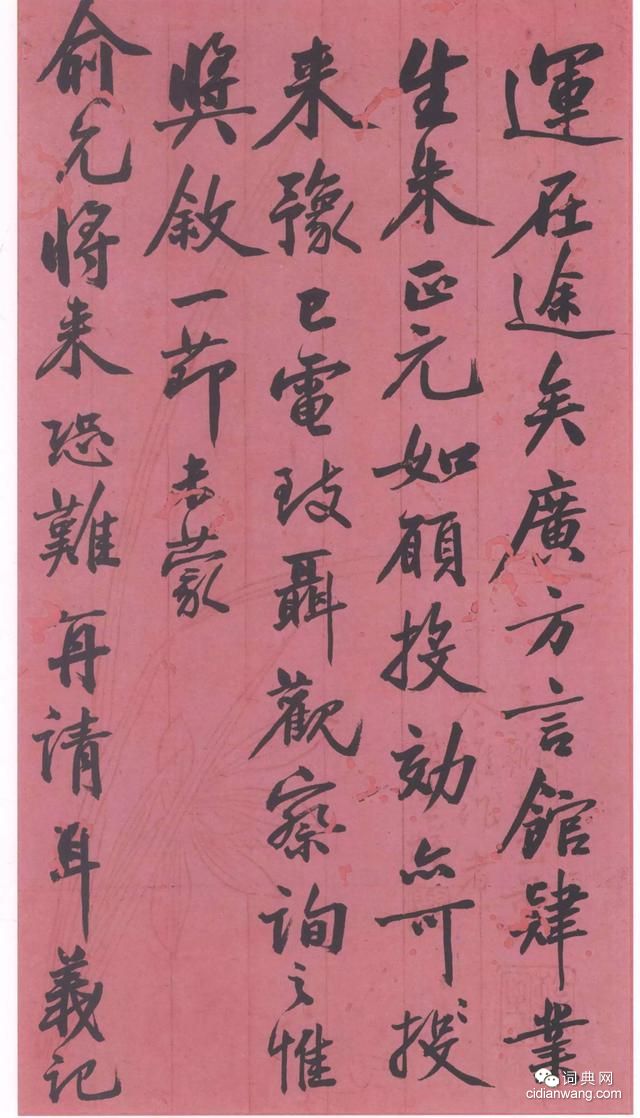 運在途矣廣方言館肄業
生朱正元如願投効亦可投
来豫已電致聶觀察詢之惟
獎敘一節蒙
俞允將来恐難再請耳義記
词典网
cidianwang.com